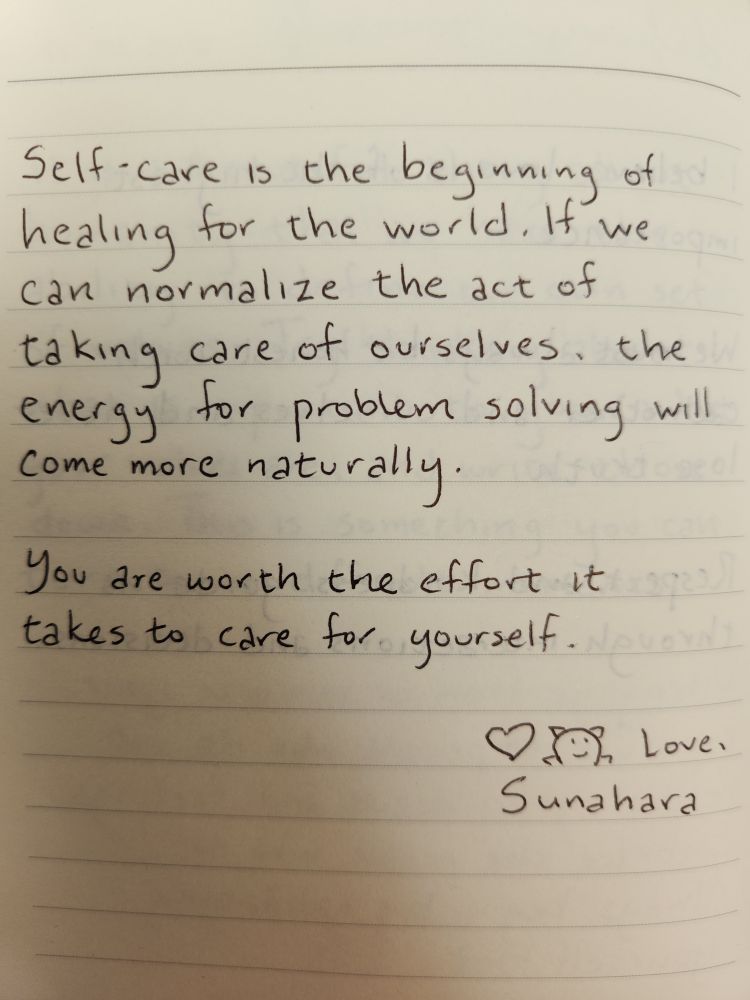 Self-care is the beginning of
healing for the world. If we
can normalize the act of
taking care of ourselves, the
energy for problem solving will
come more naturally.
You are worth the effort it
takes to care for yourself.
Love,
Sunahara